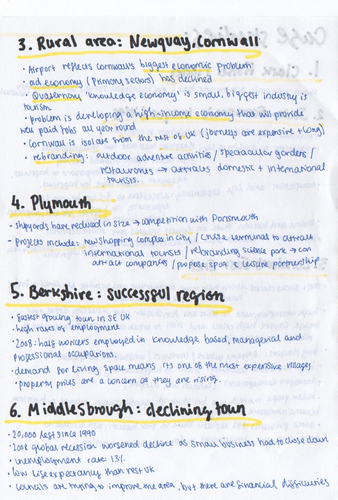 3. Rural area: Newquay, Cornwall
• Airport reflects cornwall's biggest economic problem
• old economy (primary sectors) has declined
• Quaternary 'knowledge economy' is small, biggest industry is
tourism
• problem is developing a high-income economy that will provide
well paid jobs all year round
• Cornwall is isolate from the rest of UK (journeys are expensive + long)
• rebranding: outdoor adventure activities / spectacular gardens /
restaurants → attracts domestic + international
tourists.
4. Plymouth
• shipyards have reduced in size → competition with Portsmouth
• Projects include: New shopping complex in city / Cruise terminal to attract
international tourists / rebranding science park → can
attract companies / propose sport & leisure partnership
5. Berkshire: successful region
• fastest growing town in SE UK
• high rates of employment
• 2008: half workers employed in knowledge based, managerial and
professional occupations.
• demand for living space means its one of the most expensive villages
• property prices are a concern as they are rising.
6. Middlesbrough: declining town
• 20,000 lost since 1990
• global recession worsened decline as small business had to close down
• unemployment rate: 13%
• low life expectancy than rest UK
• councils are trying to improve area, but there are financial difficulties